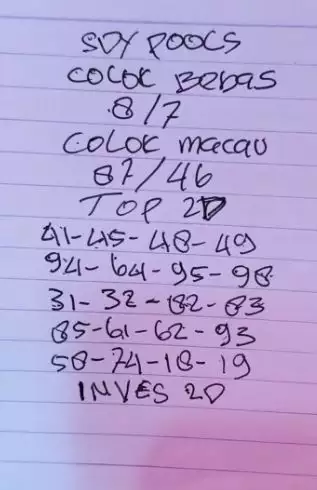 SDY POOLS
COLOK BEBAS
8/7
COLOK macau
87/46
TOP 2D
41-45-48-49
94-64-95-98
31-32-82-83
85-61-62-93
58-74-18-19
INVES 2D